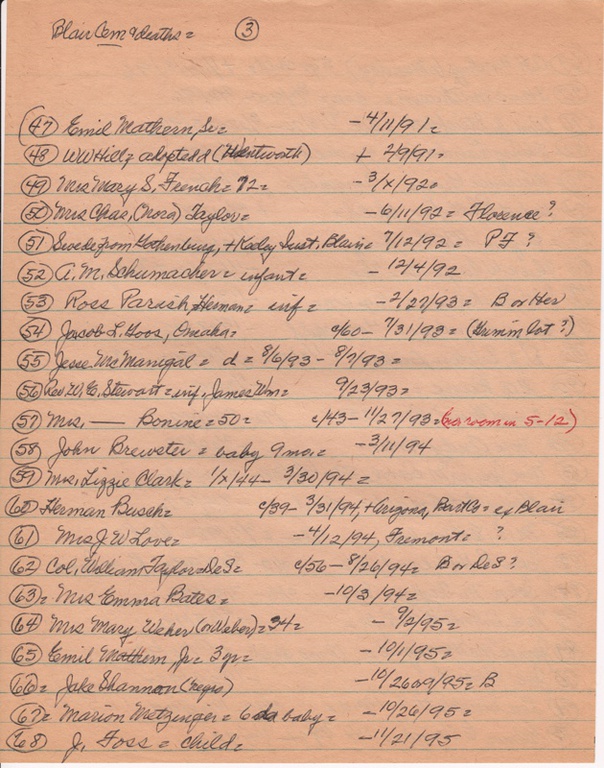 Blair Cem & deaths = ③
(47) Emil Mathern, Sr = - 4/11/91 =
(48) WW Hill = adopted d (Wentworth) + 2/9/91 =
(49) Mrs Mary S. French = 72 = - 3/x/92 =
(50) Mrs Chas, (Nora) Taylor = - 6/11/92 = Florence?
(51) Swede from, + Kaley Inst. Blair = 7/12/92 = P F ?
(52) A. M. Schumacher = infant = - 12/4/92
(53) Ross Parish, Herman = inf = - 2/27/93 = B or Her
(54) Jacob L. Goos, Omaha = c/60 - 7/31/93 = (Grimm lot ?)
(55) Jesse McManigal = d = 8/6/93 - 8/7/93 =
(56) Rev. W. C. Stewart = inf, James Wm = 9/23/93 =
(57) Mrs, — Bonine = 50 = c/43 - 11/27/93 = (no room in 5-12)
(58) John Brewster = baby 9 mo = - 3/11/94
(59) Mrs, Lizzie Clark = 1/x/44 - 3/30/94 =
(60) Herman Busch = c/39 - 3/31/94, + Arizona, = ex Blair
(61) Mrs J. W Love = - 4/12/94, Fremont = ?
(62) Col, William Taylor = DeS = c/56 - 8/26/94 = B or DeS ?
(63) = Mrs Emma Bates = - 10/3/94 =
(64) Mrs Mary Weher (or Weber) = 34 = - 9/2/95 =
(65) Emil Mathern Jr = 3 yr = - 10/1/95 =
(66) = Jake Shannon (negro) - 10/26 o 9/95 = B
(67) = Marion Metzinger = 6 da baby = - 10/26/95 =
(68) J, Foss = child = - 11/21/95